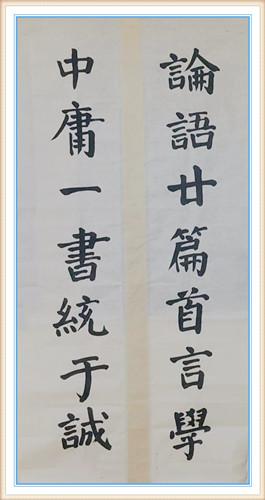 論語廿篇首言學
中庸一書統于誠